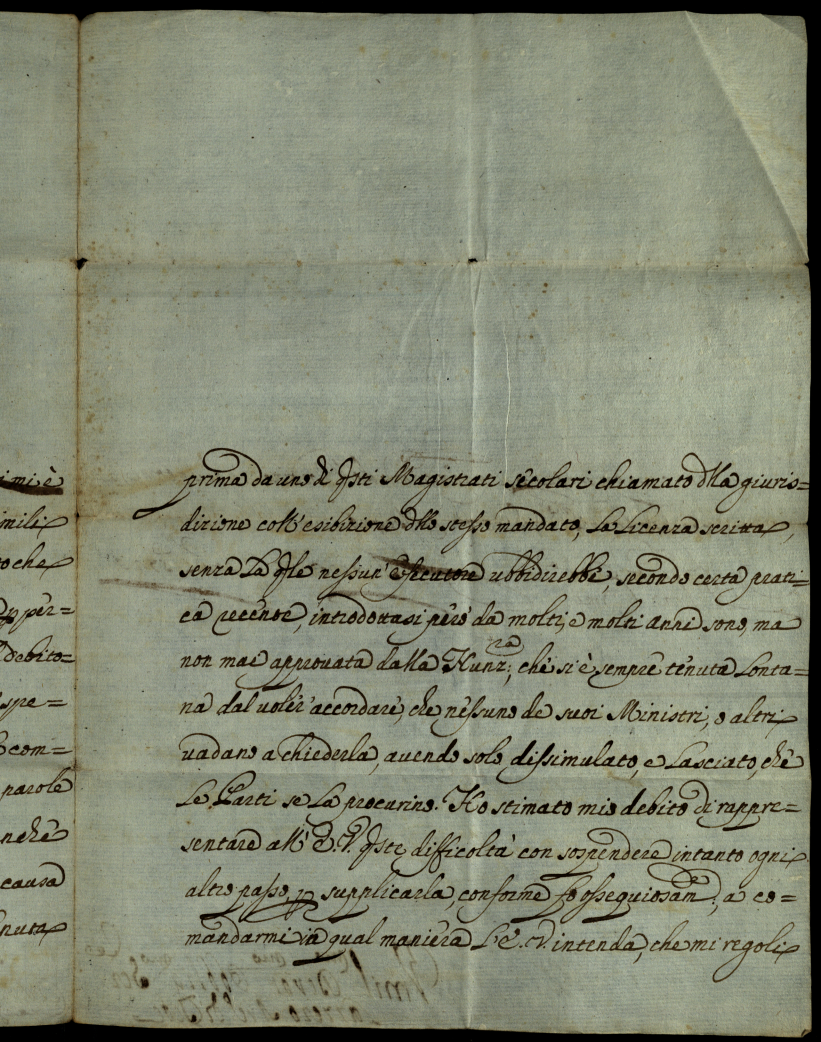 i mi è
imili
to che
pper=
debito=
spe=
com=
parole
nchè
causa
nuta
prima da uno di qsti Magistrati secolari chiamato dlla giuris=
dizione coll' esibizione dllo stesso mandato, la licenza scritta,
senza la qle nessun' esecutore ubbidirebbe, secondo certa prati=
ca recente, introdottasi però da molti, e molti anni sono, ma
non mai approvata dalla Nunz:ra; che si è sempre tenuta lonta=
na dal voler' accordare, che nessuno de suoi Ministri, o altri
vadano a chiederla, avendo solo dissimulato, e lasciato, che
le Parti se la procurino. Ho stimato mio debito di rappre=
sentare all' E. V. qste difficoltà con sospendere intanto ogni
altro passo, p supplicarla, conforme fo ossequiosamte, a co=
mandarmi in qual maniera l' E. V. intenda, che mi regoli